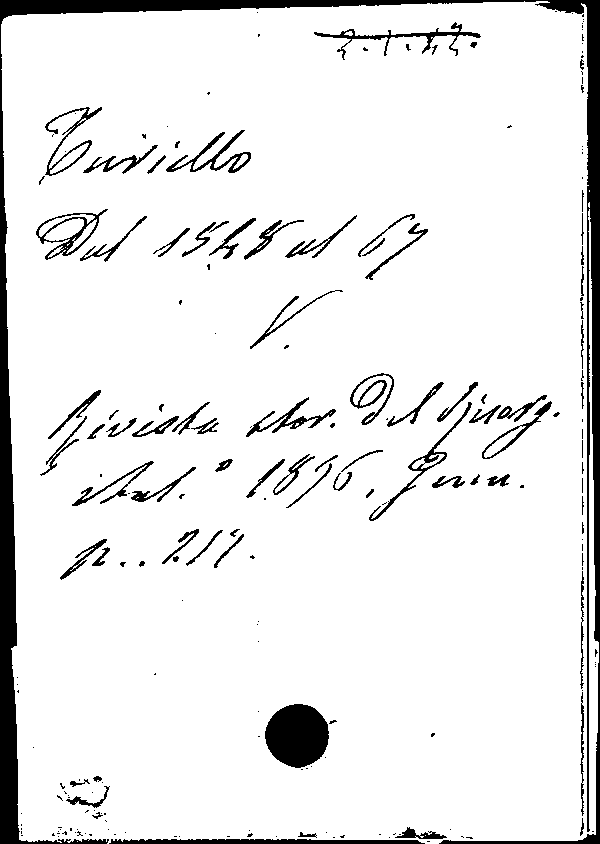 2.1.42.
Turiello
Dal 1848 al 67
V.
Rivista stor. del Risorg.
ital." 1896, Genn.
p.. 217.